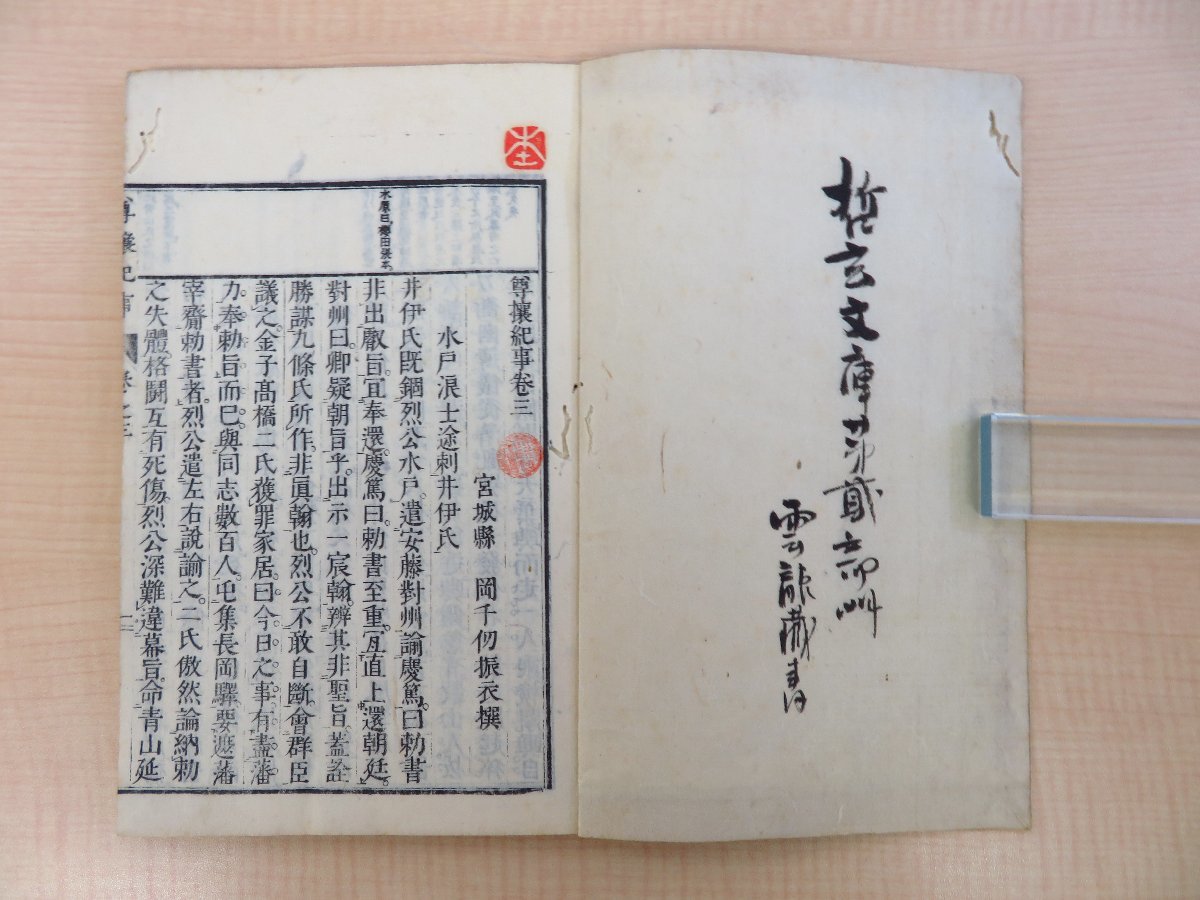 哲玄文庫
雲龍蔵書
水原曰、櫻田張本、
尊攘紀事卷三
宮城縣 岡千仞振衣撰
水戸浪士途刺井伊氏
井伊氏既錮烈公水戸。遣安藤對州諭慶篤曰勅書
非出叡旨。宜奉還。慶篤曰。勅書至重。宜直上還朝廷。
對州曰。卿疑朝旨乎。出示一宸翰。辨其非聖旨。蓋詮
勝謀九條氏所作。非眞翰也。烈公不敢自斷。會群臣
議之。金子髙橋二氏獲罪家居。曰今日之事。有盡藩
力。奉勅旨而已。與同志數百人。屯集長岡驛。要遮藩
宰齎勅書者。烈公遣左右說諭之。二氏傲然論納勅
之失體。格鬪互有死傷。烈公深難違幕旨。命青山延
尊攘紀事 卷之三